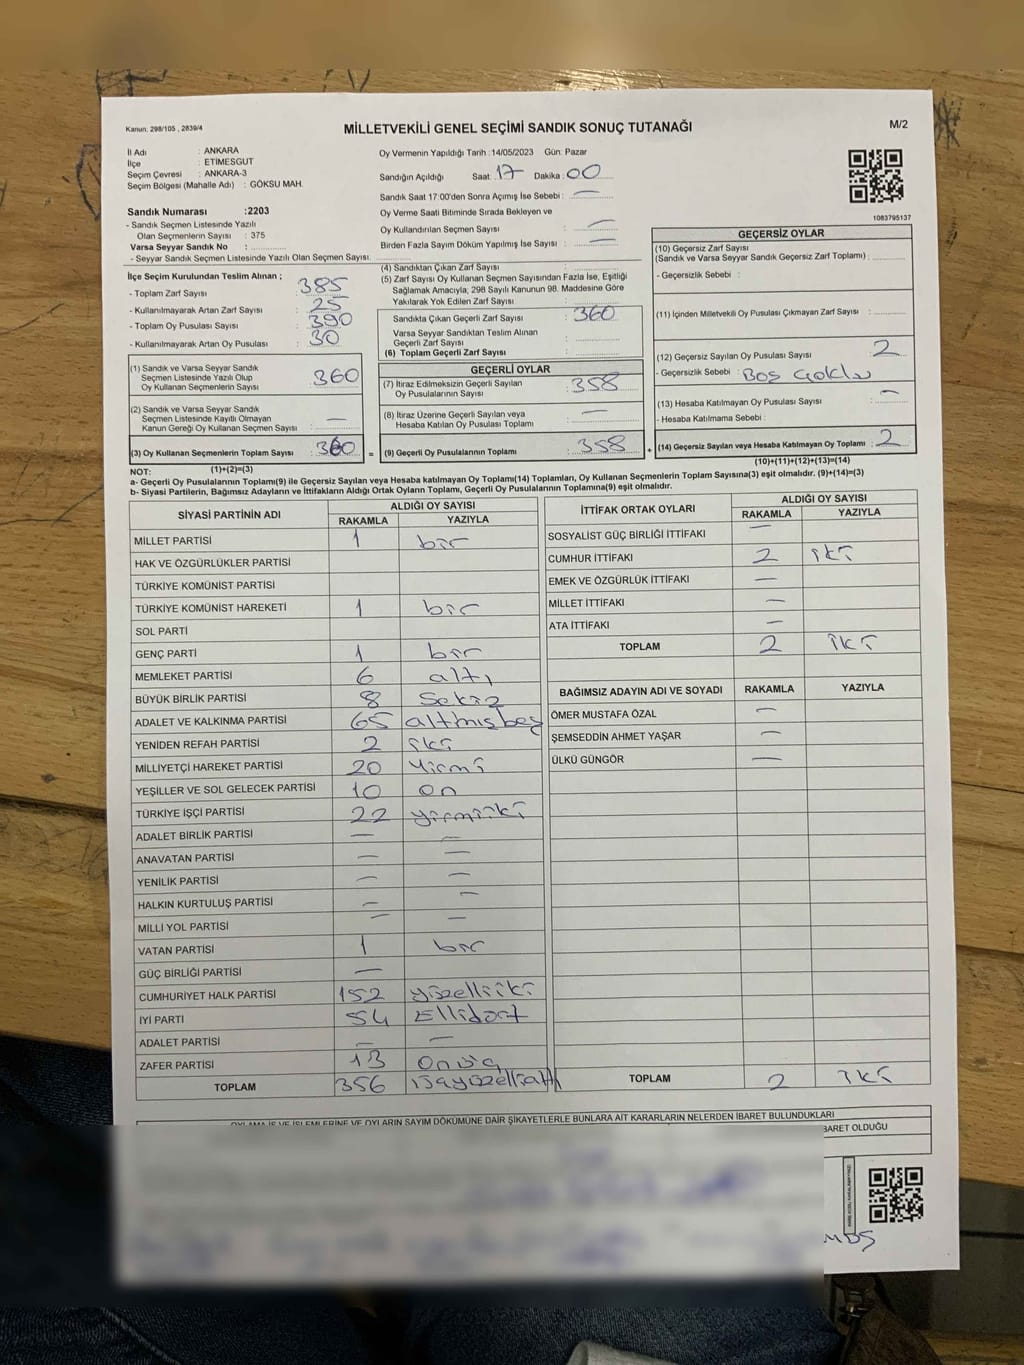 Kanun: 298/105 , 2839/4
MİLLETVEKİLİ GENEL SEÇİMİ SANDIK SONUÇ TUTANAĞI
M/2
İl Adı : ANKARA
İlçe : ETİMESGUT
Seçim Çevresi : ANKARA-3
Seçim Bölgesi (Mahalle Adı) : GÖKSU MAH.
Sandık Numarası :2203
- Sandık Seçmen Listesinde Yazılı
Olan Seçmenlerin Sayısı : 375
Varsa Seyyar Sandık No :
- Seyyar Sandık Seçmen Listesinde Yazılı Olan Seçmen Sayısı:
Oy Vermenin Yapıldığı Tarih :14/05/2023 Gün: Pazar
Sandığın Açıldığı Saat: 17 Dakika: 00
Sandık Saat 17:00'den Sonra Açımış İse Sebebi : —
Oy Verme Saati Bitiminde Sırada Bekleyen ve
Oy Kullandırılan Seçmen Sayısı : —
Birden Fazla Sayım Döküm Yapılmış İse Sayısı : —
1083795137
İlçe Seçim Kurulundan Teslim Alınan ;
- Toplam Zarf Sayısı : 385
- Kullanılmayarak Artan Zarf Sayısı : 25
- Toplam Oy Pusulası Sayısı : 390
- Kullanılmayarak Artan Oy Pusulası : 30
(1) Sandık ve Varsa Seyyar Sandık
Seçmen Listesinde Yazılı Olup
Oy Kullanan Seçmenlerin Sayısı : 360
(2) Sandık ve Varsa Seyyar Sandık
Seçmen Listesinde Kayıtlı Olmayan
Kanun Gereği Oy Kullanan Seçmen Sayısı : —
(3) Oy Kullanan Seçmenlerin Toplam Sayısı : 360 =
(4) Sandıktan Çıkan Zarf Sayısı :
(5) Zarf Sayısı Oy Kullanan Seçmen Sayısından Fazla İse, Eşitliği
Sağlamak Amacıyla, 298 Sayılı Kanunun 98. Maddesine Göre
Yakılarak Yok Edilen Zarf Sayısı :
Sandıkta Çıkan Geçerli Zarf Sayısı : 360
Varsa Seyyar Sandıktan Teslim Alınan
Geçerli Zarf Sayısı :
(6) Toplam Geçerli Zarf Sayısı :
GEÇERLİ OYLAR
(7) İtiraz Edilmeksizin Geçerli Sayılan
Oy Pusulalarının Sayısı : 358
(8) İtiraz Üzerine Geçerli Sayılan veya
Hesaba Katılan Oy Pusulası Toplamı : —
(9) Geçerli Oy Pusulalarının Toplamı : 358 +
GEÇERSİZ OYLAR
(10) Geçersiz Zarf Sayısı
(Sandık ve Varsa Seyyar Sandık Geçersiz Zarf Toplamı) :
- Geçersizlik Sebebi :
(11) İçinden Milletvekili Oy Pusulası Çıkmayan Zarf Sayısı :
(12) Geçersiz Sayılan Oy Pusulası Sayısı : 2
- Geçersizlik Sebebi : Boş
(13) Hesaba Katılmayan Oy Pusulası Sayısı : —
- Hesaba Katılmama Sebebi :
(14) Geçersiz Sayılan veya Hesaba Katılmayan Oy Toplamı : 2
NOT: (1)+(2)=(3)
(10)+(11)+(12)+(13)=(14)
a- Geçerli Oy Pusulalarının Toplamı(9) ile Geçersiz Sayılan veya Hesaba katılmayan Oy Toplamı(14) Toplamları, Oy Kullanan Seçmenlerin Toplam Sayısına(3) eşit olmalıdır. (9)+(14)=(3)
b- Siyasi Partilerin, Bağımsız Adayların ve İttifakların Aldığı Ortak Oyların Toplamı, Geçerli Oy Pusulalarının Toplamına(9) eşit olmalıdır.
SİYASİ PARTİNİN ADI ALDIĞI OY SAYISI
RAKAMLA YAZIYLA
MİLLET PARTİSİ 1 bir
HAK VE ÖZGÜRLÜKLER PARTİSİ
TÜRKİYE KOMÜNİST PARTİSİ
TÜRKİYE KOMÜNİST HAREKETİ 1 bir
SOL PARTİ
GENÇ PARTİ 1 bir
MEMLEKET PARTİSİ 6 altı
BÜYÜK BİRLİK PARTİSİ 8 Sekiz
ADALET VE KALKINMA PARTİSİ 65 altmışbeş
YENİDEN REFAH PARTİSİ 2 iki
MİLLİYETÇİ HAREKET PARTİSİ 20 Yirmi
YEŞİLLER VE SOL GELECEK PARTİSİ 10 on
TÜRKİYE İŞÇİ PARTİSİ 22 yirmiiki
ADALET BİRLİK PARTİSİ — —
ANAVATAN PARTİSİ — —
YENİLİK PARTİSİ — —
HALKIN KURTULUŞ PARTİSİ — —
MİLLİ YOL PARTİSİ — —
VATAN PARTİSİ 1 bir
GÜÇ BİRLİĞİ PARTİSİ —
CUMHURİYET HALK PARTİSİ 152 yüzelliiki
İYİ PARTİ 54 Ellidört
ADALET PARTİSİ — —
ZAFER PARTİSİ 13 Onüç
TOPLAM 356 üçyüzelliAltı
İTTİFAK ORTAK OYLARI ALDIĞI OY SAYISI
RAKAMLA YAZIYLA
SOSYALİST GÜÇ BİRLİĞİ İTTİFAKI —
CUMHUR İTTİFAKI 2 iki
EMEK VE ÖZGÜRLÜK İTTİFAKI —
MİLLET İTTİFAKI —
ATA İTTİFAKI —
TOPLAM 2 iki
BAĞIMSIZ ADAYIN ADI VE SOYADI RAKAMLA YAZIYLA
ÖMER MUSTAFA ÖZAL —
ŞEMSEDDİN AHMET YAŞAR —
ÜLKÜ GÜNGÖR —
TOPLAM 2 iki
OYLAMA İŞ VE İŞLEMLERİNE VE OYLARIN SAYIM DÖKÜMÜNE DAİR ŞİKAYETLERLE BUNLARA AİT KARARLARIN NELERDEN İBARET BULUNDUKLARI
BARET OLDUĞU